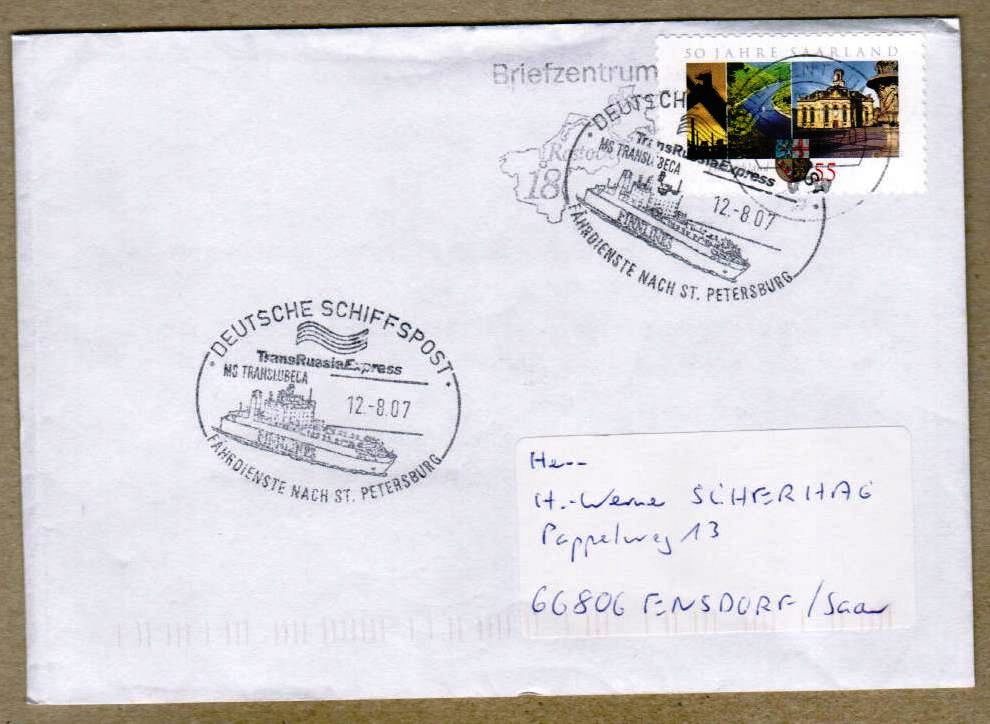 50 JAHRE SAARLAND
55
Briefzentrum
Rostock
18
DEUTSCHE SCH
TransRussiaExpress
MS TRANSLUBECA
12.-8.07
FINNLINES
FÄHRDIENSTE NACH ST. PETERSBURG
DEUTSCHE SCHIFFSPOST
TransRussiaExpress
MS TRANSLUBECA
12.-8.07
FINNLINES
FÄHRDIENSTE NACH ST. PETERSBURG
Herrn
H.-Werner SCHERHAG
Pappelweg 13
66806 ENSDORF/Saar